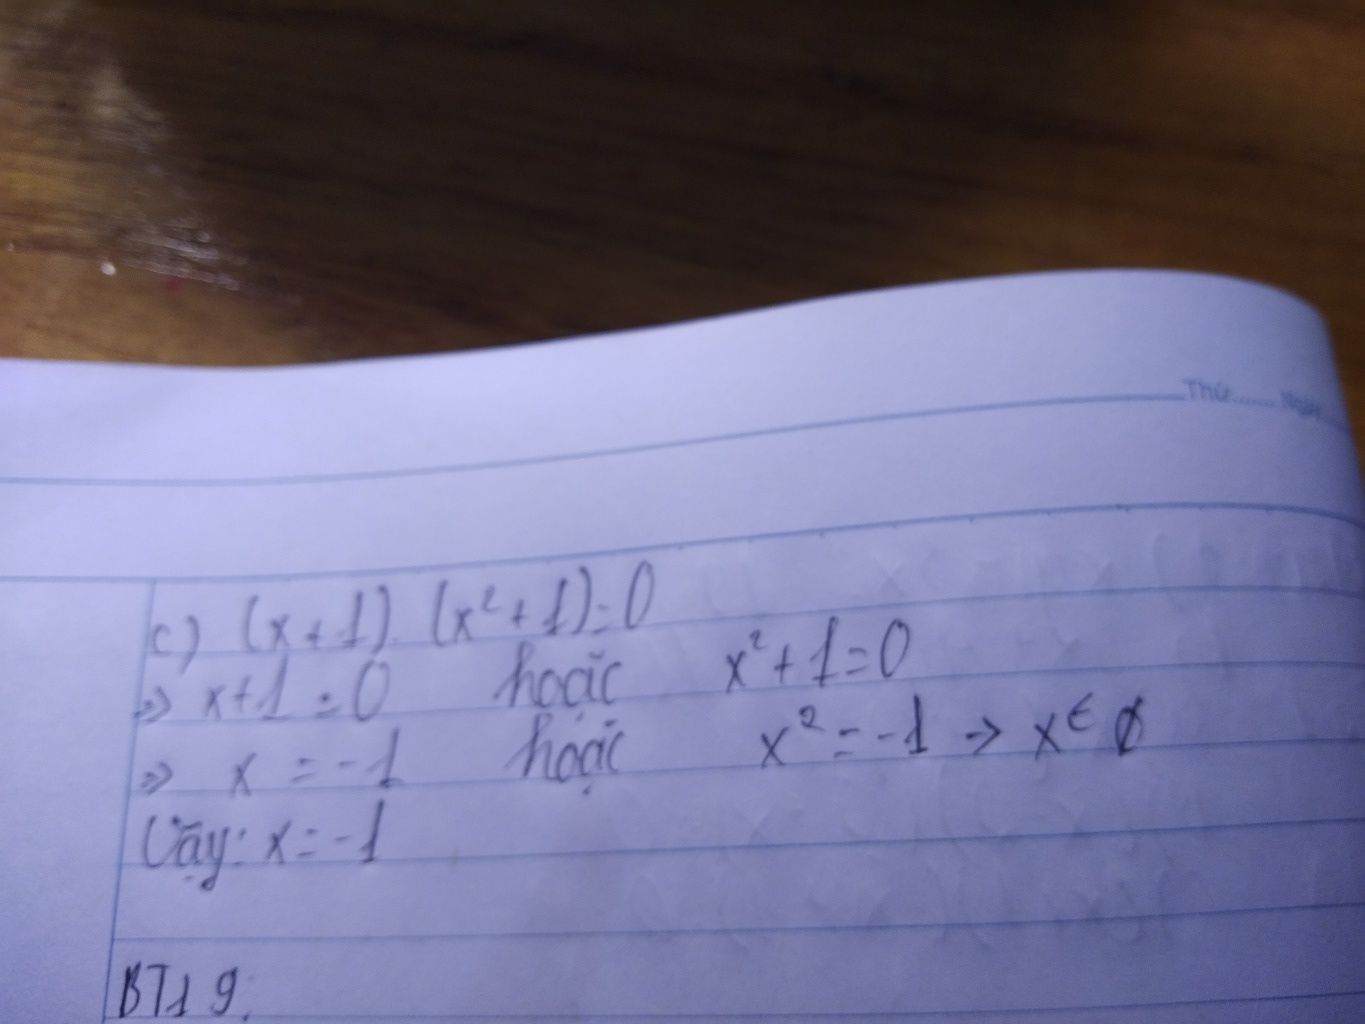 Thứ....... Ngày
c) (x+1).(x²+1)=0
=> x+1=0 hoặc x²+1=0
=> x = -1 hoặc x² = -1 -> x ∈ ∅
Vậy: x = -1
BT19: